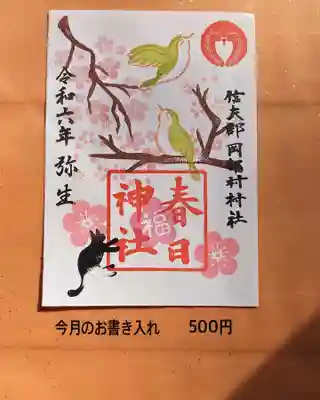 信夫郡岡部村村社
春日
神社
福
令和六年 弥生
今月のお書き入れ 500円